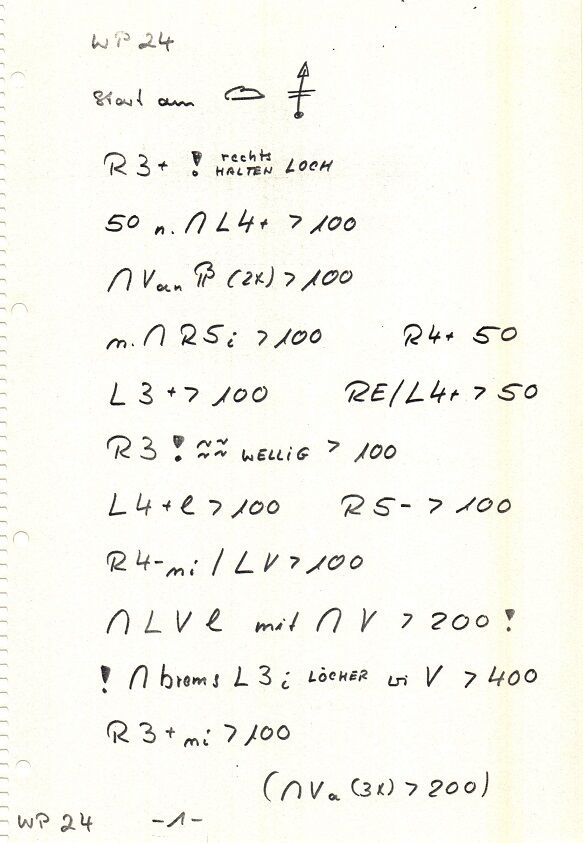 WP 24
Start am
R 3+ ! rechts HALTEN LOCH
50 n. ∩ L4+ > 100
∩ V an (2x) > 100
n. ∩ R5i > 100 R4+ 50
L 3+ > 100 RE/L4+ > 50
R 3 ! ≈≈ WELLIG > 100
L4+l > 100 R5- > 100
R4- mi / LV > 100
∩ L V l mit ∩ V > 200 !
! ∩ brems L3i LÖCHER wi V > 400
R 3+ mi > 100
(∩ Va (3x) > 200)
WP 24 -1-